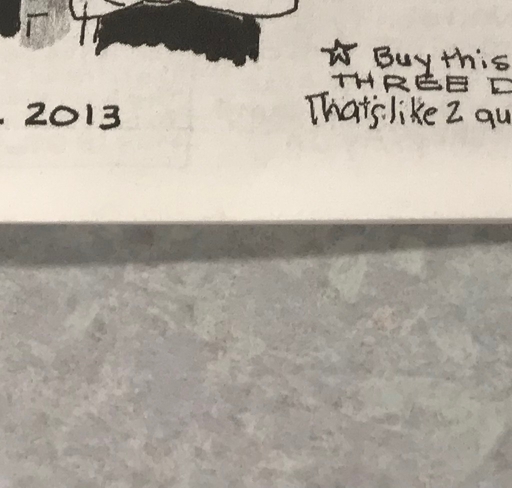 . 2013
☆ Buy this
THREE D
That's like 2 qu